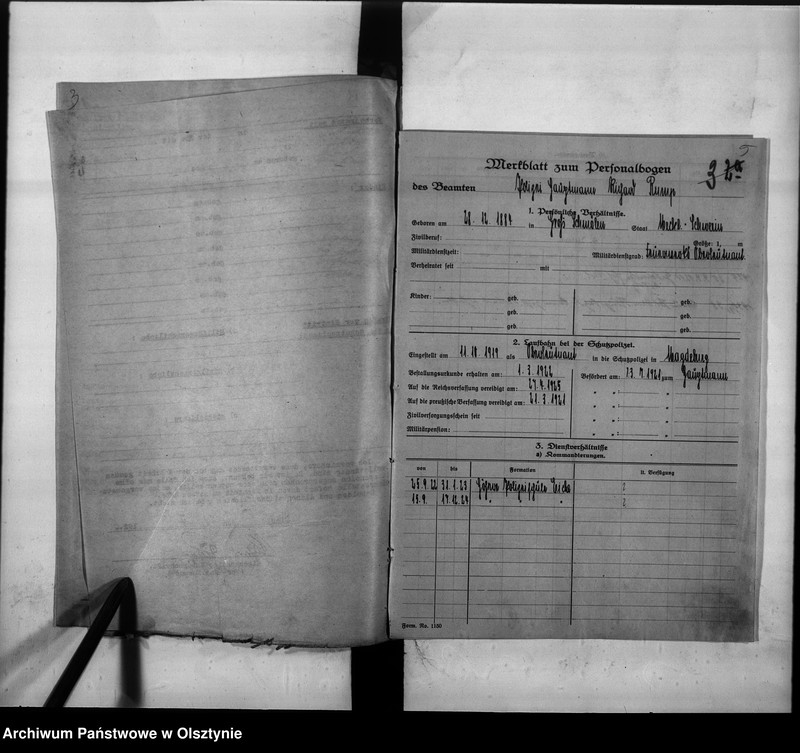 3
5
Merkblatt zum Personalbogen
des Beamten Polizei Hauptmann Richard Rump
1. Persönliche Verhältnisse.
Geboren am 28. 12. 1889 in Groß Schmölen Staat Meckl.-Schwerin
Zivilberuf: Größe: 1, m
Militärdienstzeit: Militärdienstgrad: Oberleutnant
Verheiratet seit mit
Kinder: geb. geb.
geb. geb.
geb. geb.
2. Laufbahn bei der Schutzpolizei.
Eingestellt am 11. 10. 1919 als Oberleutnant in die Schutzpolizei in Magdeburg
Bestallungsurkunde erhalten am: 1. 3. 1922 Befördert am: 13. 7. 1921 zum Hauptmann
Auf die Reichsverfassung vereidigt am: 27. 4. 1925 " " : "
Auf die preußische Verfassung vereidigt am: 21. 3. 1921 " " : "
Zivilversorgungsschein seit " " : "
Militärpension: " " : "
3. Dienstverhältnisse
a) Kommandierungen.
von bis Formation lt. Verfügung
25. 9. 22 31. 1. 23 Höhere Polizeischule Eiche
15. 9. 17. 12. 24 " "
Form. No. 1100
Archiwum Państwowe w Olsztynie